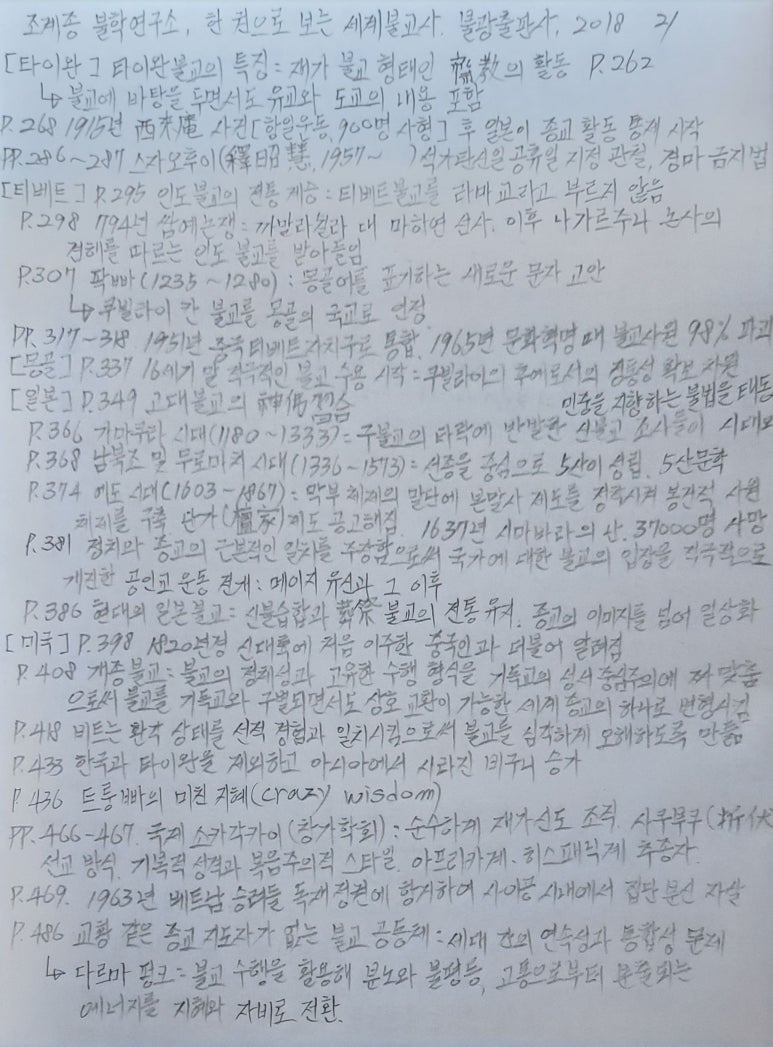 조계종 불학연구소, 한 권으로 보는 세계불교사. 불광출판사, 2018 2/
[타이완] 타이완불교의 특징: 재가 불교 형태인 齋教의 활동 P.262
↳ 불교에 바탕을 두면서도 유교와 도교의 내용 포함
P.268 1915년 西來庵 사건[항일운동, 900명 사형] 후 일본이 종교 활동 통제 시작
PP.286~287 스자오후이(釋昭慧, 1957~ ) 석가탄신일 공휴일 지정 관철, 경마 금지법
[티베트] P.295 인도불교의 전통 계승: 티베트불교를 라마교라고 부르지 않음
P.298 794년 쌈예논쟁: 까말라쉴라 대 마하연 선사. 이후 나가르주나 논사의
견해를 따르는 인도 불교를 받아들임
P.307 팍빠(1235~1280): 몽골어를 표기하는 새로운 문자 고안
↳ 쿠빌라이 칸 불교를 몽골의 국교로 인정
PP.317~318. 1951년 중국 티베트자치구로 통합. 1965년 문화혁명 때 불교사원 98% 파괴
[몽골] P.337 16세기 말 적극적인 불교 수용 시작: 쿠빌라이의 후예로서의 정통성 확보 차원
[일본] P.349 고대불교의 神佛習合 민중을 지향하는 불법을 태동
P.366 가마쿠라 시대(1180~1333): 구불교의 타락에 반발한 신불교 조사들이 시대와
P.368 남북조 및 무로마치 시대(1336~1573): 선종을 중심으로 5산이 성립. 5산문학
P.374 에도 시대(1603~1867): 막부 체제의 말단에 본말사 제도를 정착시켜 봉건적 사원
체제를 구축 단가(檀家)제도 공고해짐. 1637년 시마바라의 난. 37000명 사망
P.381 정치와 종교의 근본적인 일치를 주장함으로써 국가에 대한 불교의 입장을 적극적으로
개진한 공인교 운동 전개: 메이지 유신과 그 이후
P.386 현대의 일본불교: 신불습합과 葬祭 불교의 전통 유지. 종교의 이미지를 넘어 일상화
[미국] P.398 1820년경 신대륙에 처음 이주한 중국인과 더불어 알려짐
P.408 개종불교: 불교의 정체성과 고유한 수행 형식을 기독교의 성서 중심주의에 짜 맞춤
으로써 불교를 기독교와 구별되면서도 상호 교환이 가능한 세계 종교의 하나로 변형시킴
P.418 비트는 환각 상태를 선적 경험과 일치시킴으로써 불교를 심각하게 오해하도록 만듦
P.433 한국과 타이완을 제외하고 아시아에서 사라진 비구니 승가
P.436 트룽빠의 미친 지혜(crazy wisdom)
PP.466-467. 국제 소카각카이(창가학회): 순수하게 재가신도 조직. 샤쿠부쿠(折伏
선교 방식. 기복적 성격과 복음주의적 스타일. 아프리카계·히스패닉계 추종자.
P.469. 1963년 베트남 승려들 독재정권에 항거하여 사이공 시내에서 집단 분신 자살
P.486 교황 같은 종교 지도자가 없는 불교 공동체: 세대 간의 연속성과 통합성 문제
↳ 다르마 펑크: 불교 수행을 활용해 분노와 불평등, 고통으로부터 분출되는
에너지를 지혜와 자비로 전환.